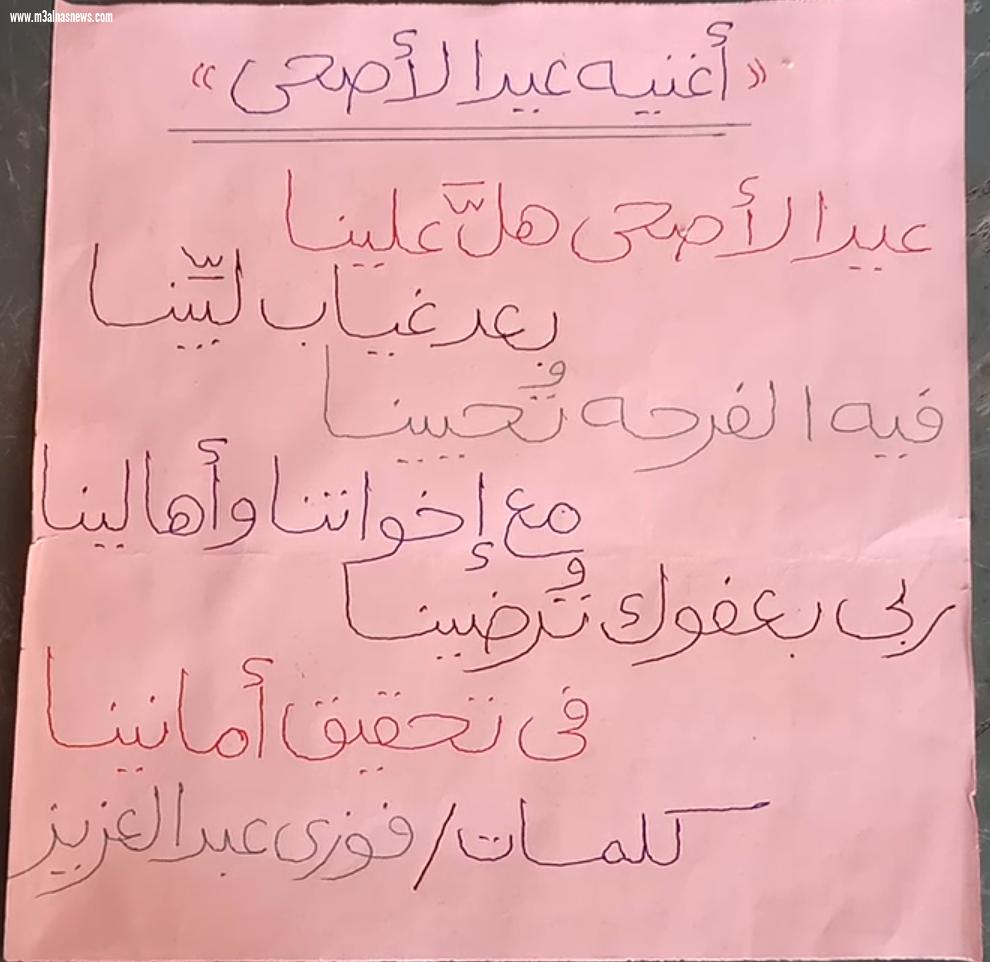 www.m3alnasnews.com
«أغنيه عيد الأضحى»
عيد الأضحى هلَّ علينا
بعد غياب ليّنا
فيه الفرحه تُحيينا
مع إخواتنا وأهالينا
ربى بعفوك تُرضينا
فى تحقيق أمانينا
كلمات / فوزى عبد العزيز